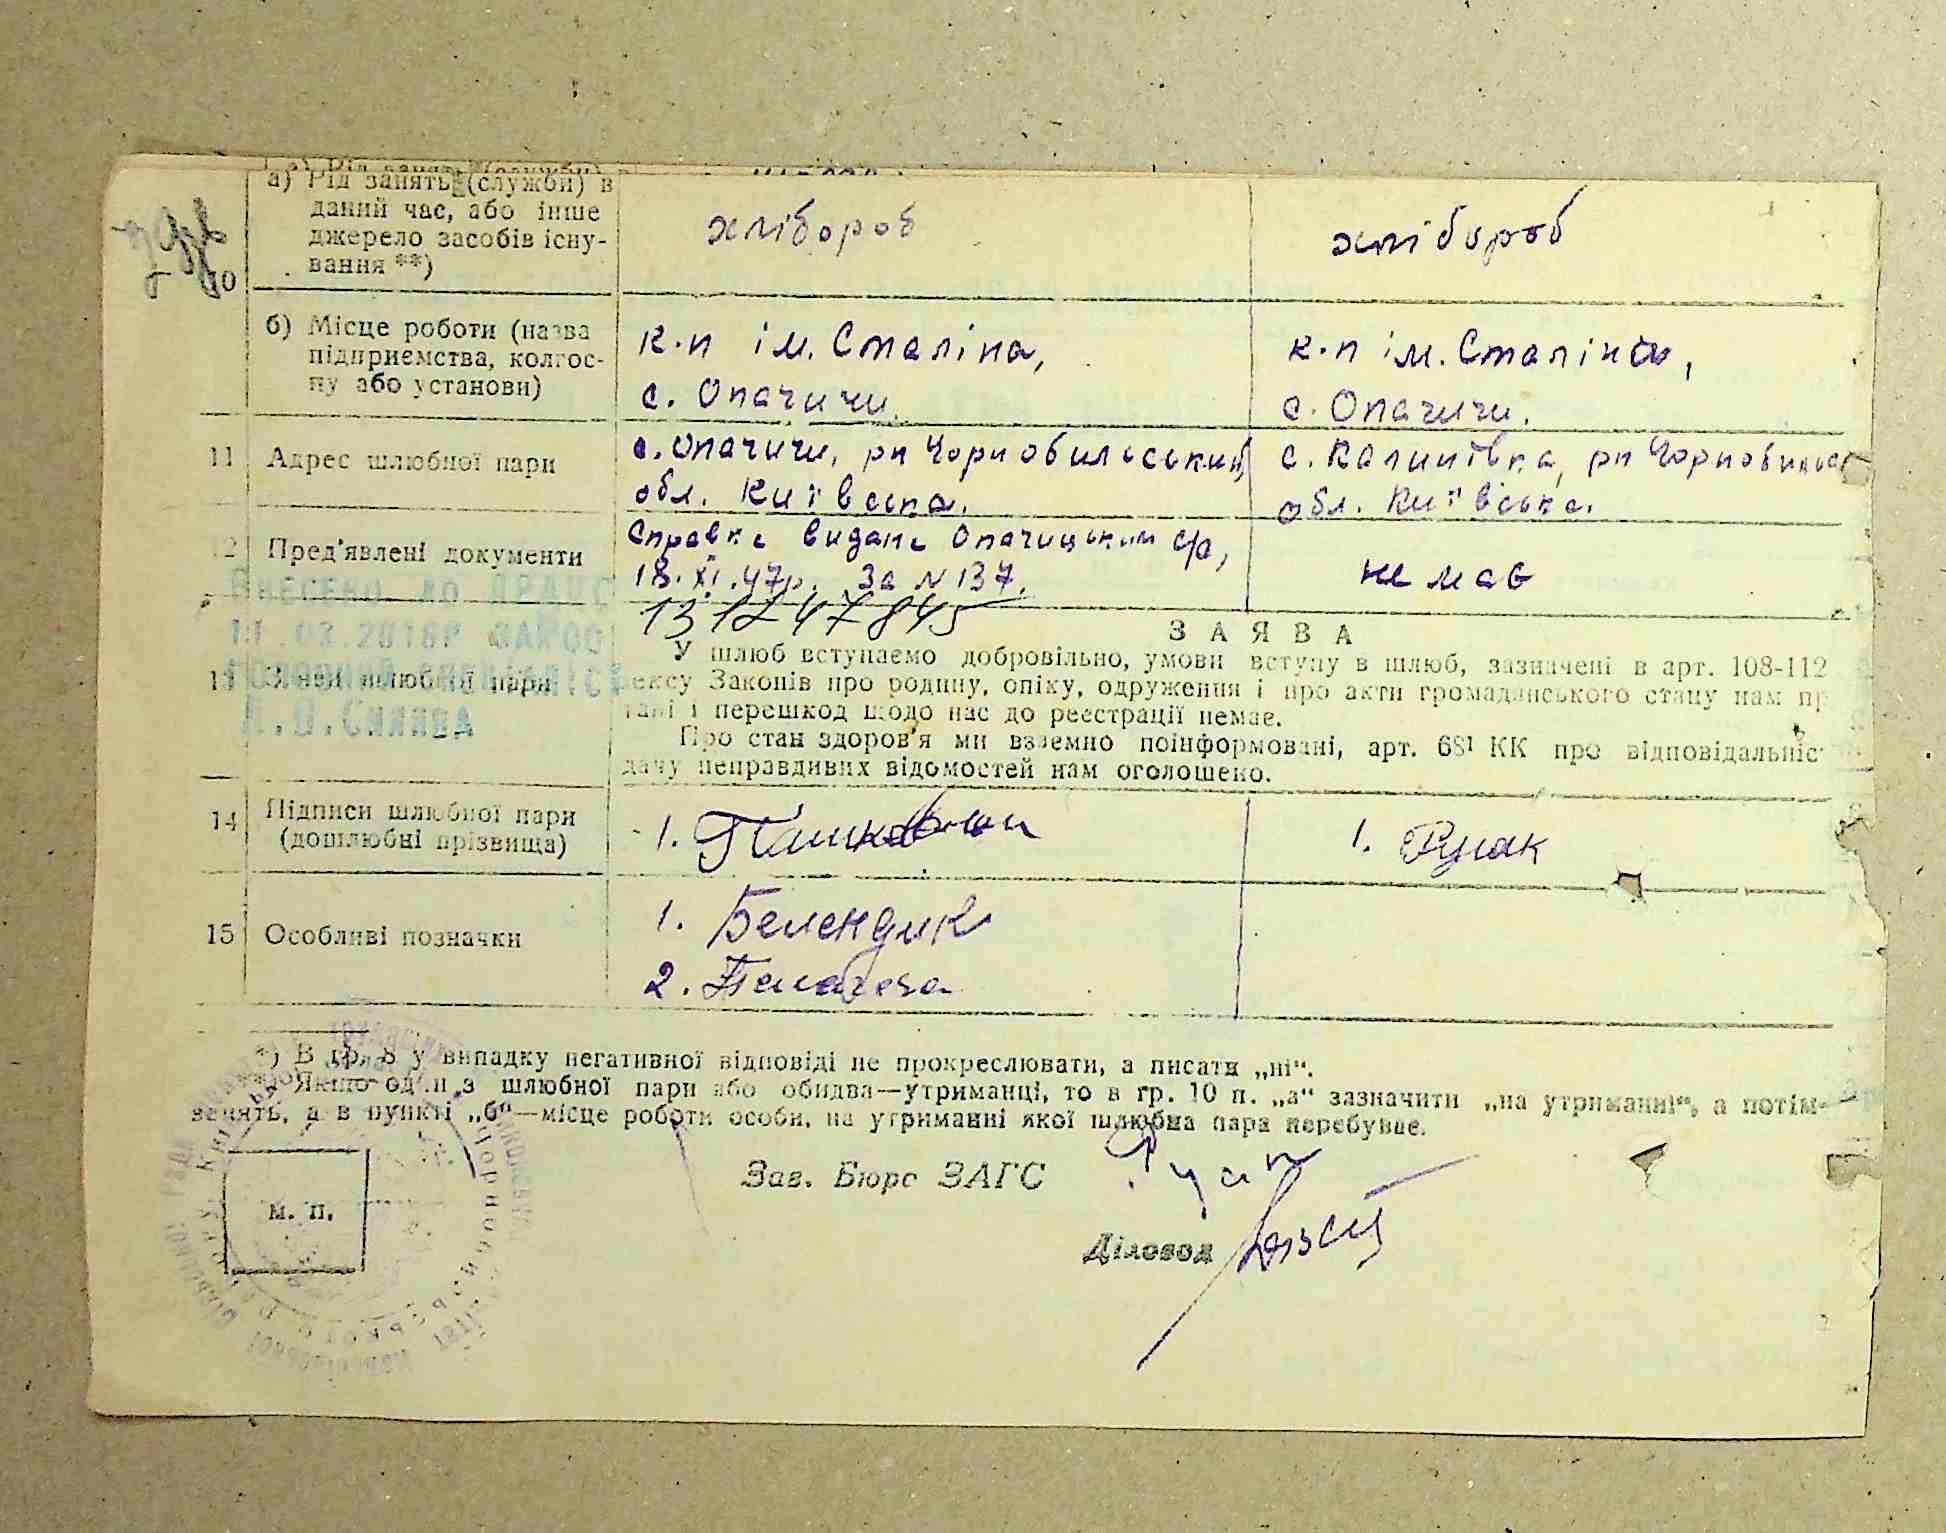 а) Рід занять (служби) в
даний час, або інше
джерело засобів існу-
вання **)
хлібороб
хлібороб
10
б) Місце роботи (назва
підприємства, колгос-
пу або установи)
к-п ім. Сталіна,
с. Опачичи.
к-п ім. Сталіна,
с. Опачичи.
11
Адрес шлюбної пари
с. Опачичи, рн Чорнобильський
обл. Київська.
с. Калинівка, рн Чорнобильсь
обл. Київська.
12
Пред'явлені документи
Справка видана Опачицьким с/р,
18.XI.47р. За N 137.
не має
131247845
Внесено до ДРАЦС
11.02.2016р
13
Заяви шлюбної пари
ЗАЯВА
У шлюб вступаємо добровільно, умови вступу в шлюб, зазначені в арт. 108-112
ексу Законів про родину, опіку, одруження і про акти громадянського стану нам пр
тані і перешкод щодо нас до реєстрації немає.
Про стан здоров'я ми взаємно поінформовані, арт. 68¹ КК про відповідальніс
дачу неправдивих відомостей нам оголошено.
14
Підписи шлюбної пари
(дошлюбні прізвища)
1.
1. Русак
15
Особливі позначки
1. Белендик
2.
*) В гр. 8 у випадку негативної відповіді не прокреслювати, а писати „ні“.
Якщо один з шлюбної пари або обидва—утриманці, то в гр. 10 п. „а“ зазначити „на утриманні“, а потім
занять, а в пункті „б“—місце роботи особи, на утриманні якої шлюбна пара перебуває.
Зав. Бюро ЗАГС
м. п.
Діловод